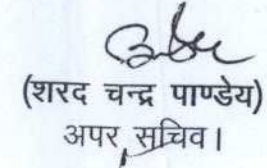 (शरद चन्द्र पाण्डेय)
अपर सचिव।